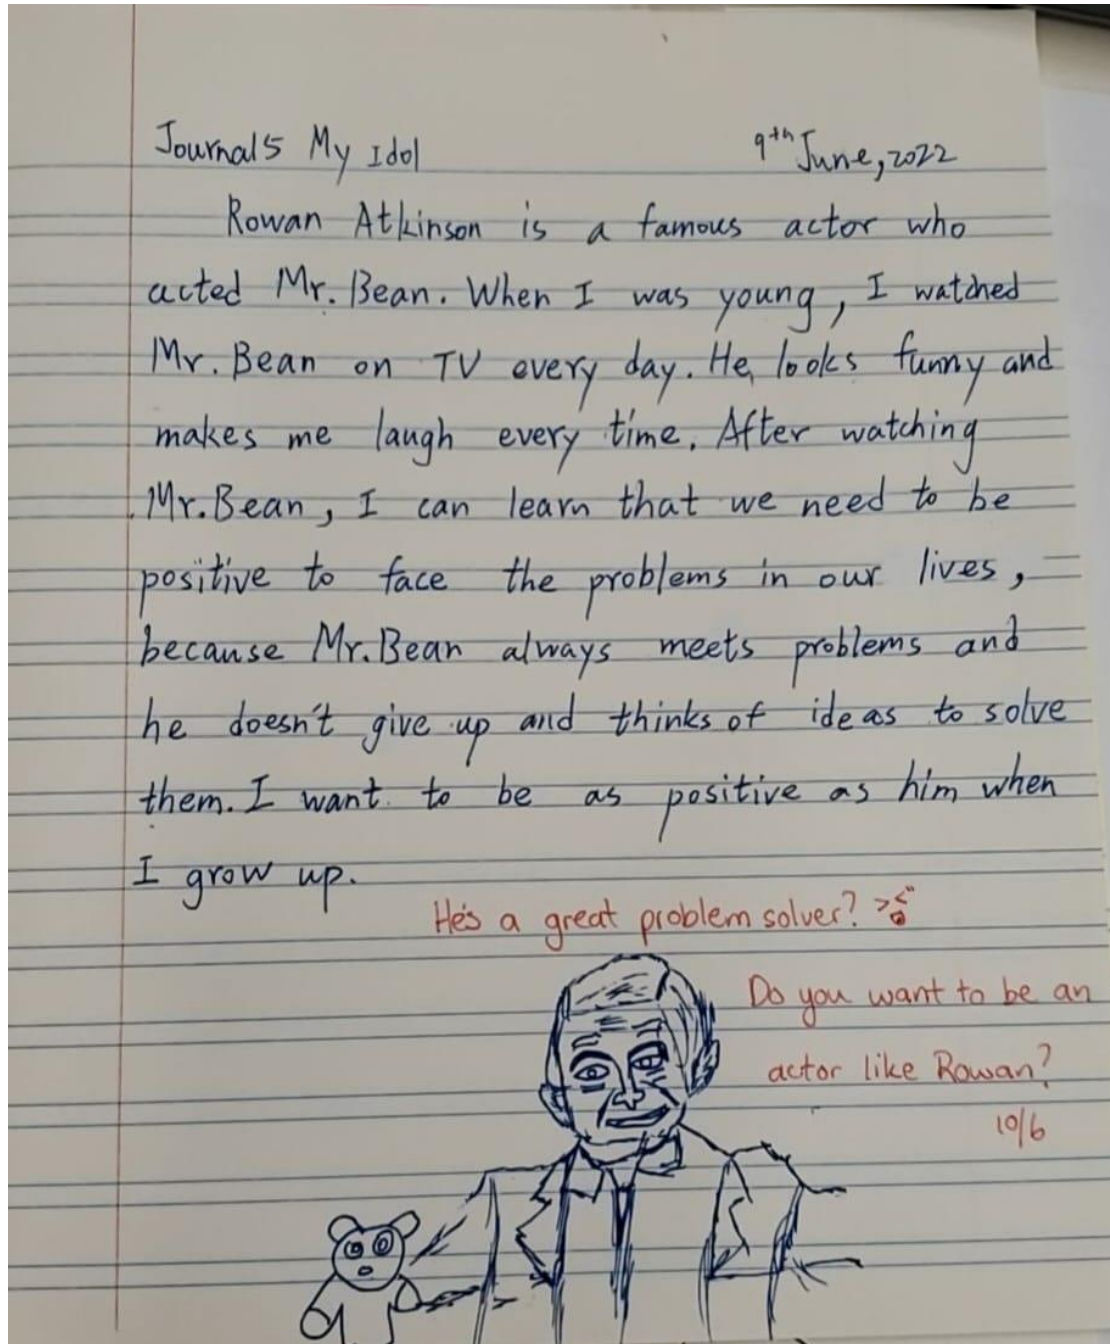 Journal5 My Idol 9th June, 2022
Rowan Atkinson is a famous actor who
acted Mr. Bean. When I was young, I watched
Mr. Bean on TV every day. He looks funny and
makes me laugh every time. After watching
Mr. Bean, I can learn that we need to be
positive to face the problems in our lives,
because Mr. Bean always meets problems and
he doesn't give up and thinks of ideas to solve
them. I want to be as positive as him when
I grow up.
He's a great problem solver?
Do you want to be an
actor like Rowan?
10/6